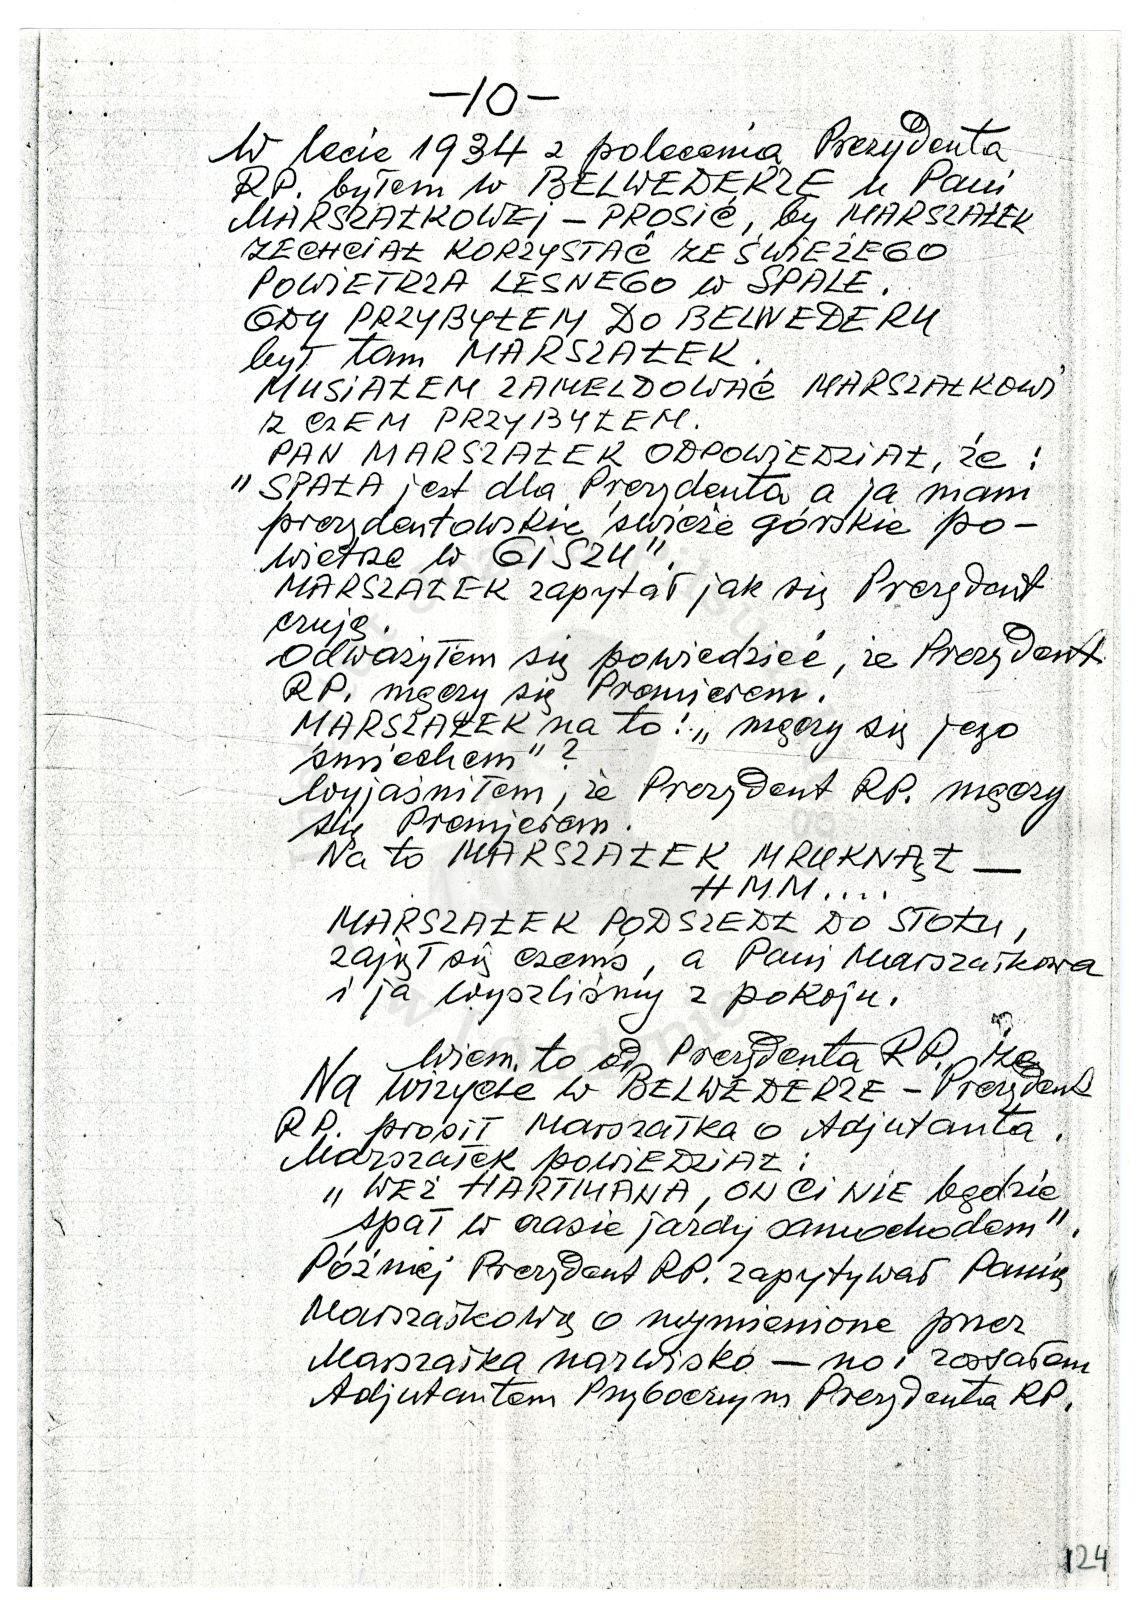 -10-
W lecie 1934 z polecenia Prezydenta
RP. byłem w BELWEDERZE u Pani
MARSZAŁKOWEJ - PROSIĆ, by MARSZAŁEK
ZECHCIAŁ KORZYSTAĆ ZE ŚWIEŻEGO
POWIETRZA LESNEGO w SPALE.
GDY PRZYBYŁEM DO BELWEDERU
był tam MARSZAŁEK.
MUSIAŁEM ZAMELDOWAĆ MARSZAŁKOWI
Z CZEM PRZYBYŁEM.
PAN MARSZAŁEK ODPOWIEDZIAŁ, że:
"SPAŁA jest dla Prezydenta a ja mam
prezydentowskie świeże górskie po-
wietrze w GISZU".
MARSZAŁEK zapytał jak się Prezydent
czuję.
Odważyłem się powiedzieć, że Prezydent
RP. męczy się Premjerem.
MARSZAŁEK na to: „męczy się jego
śmiechem"?
Wyjaśniłem, że Prezydent RP. męczy
się Premjerem.
Na to MARSZAŁEK MRUKNĄŁ —
HMM....
MARSZAŁEK PODSZEDŁ DO STOŁU,
zajął się czemś, a Pani Marszałkowa
i ja wyszliśmy z pokoju.
Wiem to od Prezydenta RP. że
Na wizycie w BELWEDERZE - Prezydent
RP. prosił Marszałka o Adjutanta.
Marszałek POWIEDZIAŁ:
„WEŹ HARTMANA, ON CI NIE będzie
spał w czasie jazdy samochodem".
Później Prezydent RP. zapytywał Panią
Marszałkową o wymienione przez
Marszałka nazwisko — no i zostałem
Adjutantem Przybocznym Prezydenta RP.
124